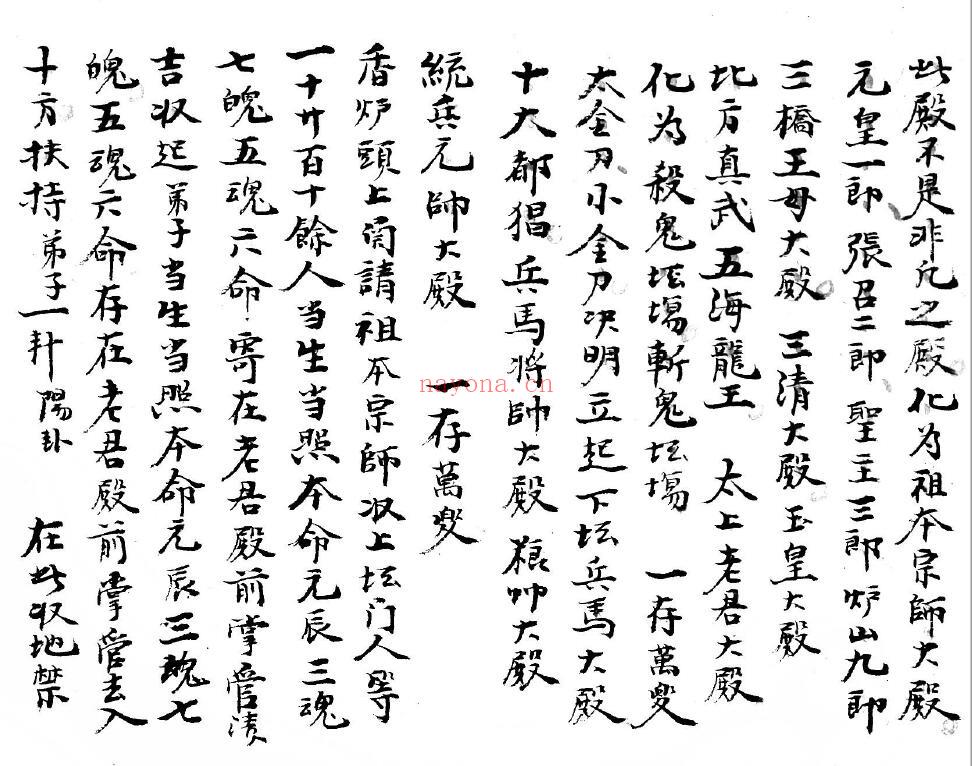 此殿不是非凡之殿化为祖本宗師大殿
元皇一郎 張召二郎 聖主三郎 炉山九郎
三橋王母大殿 三清大殿 玉皇大殿
北方真武五海龍王 太上老君大殿
化为殺鬼坛場斬鬼坛場 一存萬变
太金刀小金刀决明立起下坛兵馬大殿
十大都猖兵馬将帥大殿 粮帅大殿
統兵元帥大殿 一存萬变
香炉頭上启請祖本宗師收上坛门人等
一十廿百十餘人当生当照本命元辰三魂
七魄五魂六命寄在老君殿前掌管
吉收起弟子当生当照本命元辰三魂七
魄五魂六命存在老君殿前掌管去入
十方扶持弟子一卦陽卦 在此收地禁
nayona.cn